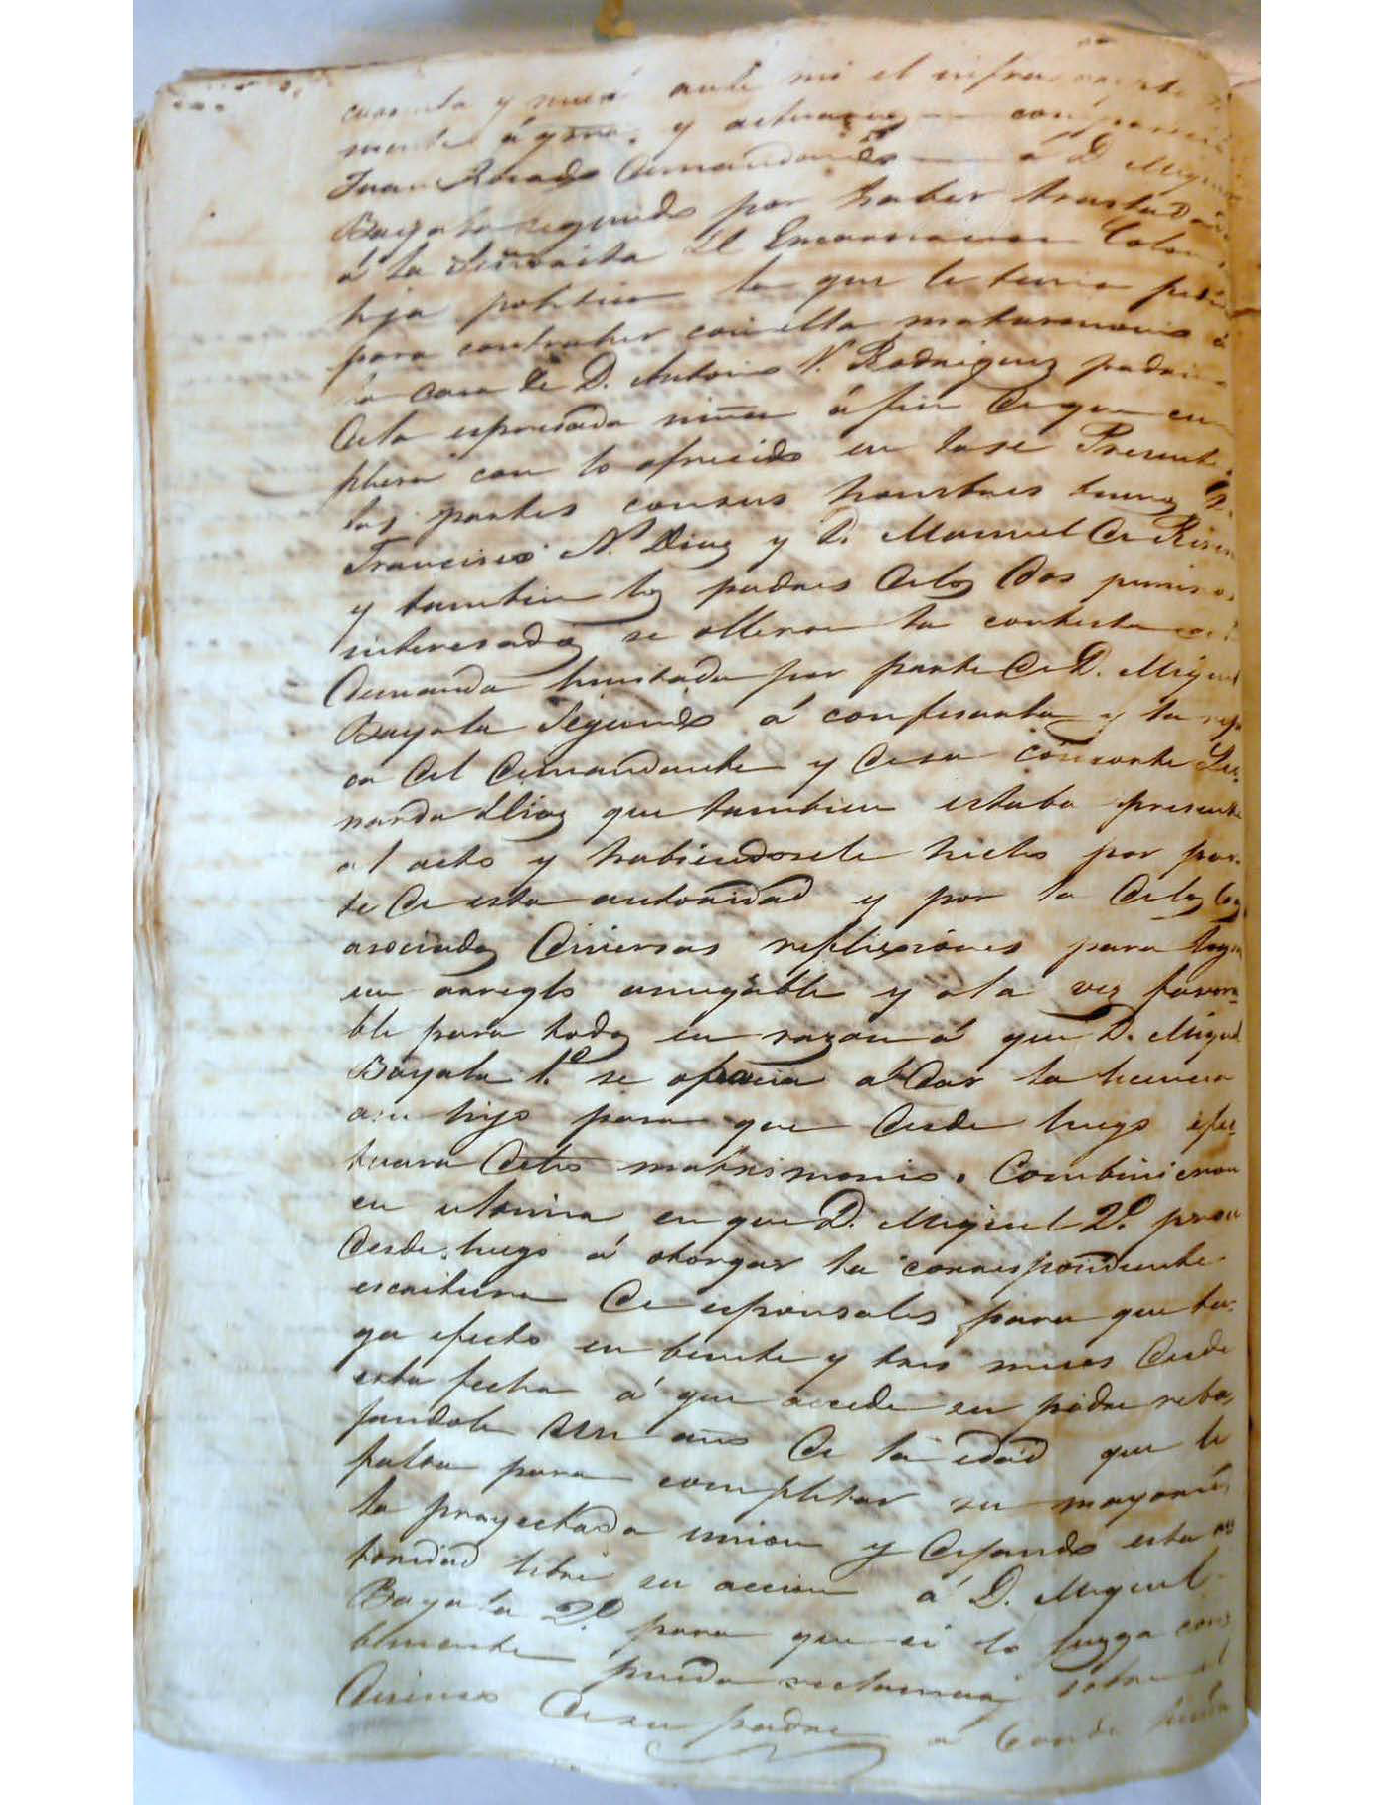 cuarenta y nueve ante mi el infra
y actuario compareció
Juan Rosado demandando á D. Miguel
Bayala segundo por haber trasladado
á la Señorita Dª Encarnacion Colon
hija politica la que le tenia pedida
para contraher con ella matrimonio á
la casa de D. Antonio N. Rodriguez padrino
dela espresada niña á fin de que cum
pliera con lo ofrecido en base Presente
las partes con sus hombres buenos D.
Francisco N. Diaz y D. Manuel de Rivera
y tambien los padres delos dos
interesados se olleron la contestacion
demanda por parte de D. Miguel
Bayala Segundo á confesarla y la repli
ca del demandante y desu consorte Leo
narda Diaz que tambien estaba presente
al acto y habiendosele hecho por par
te de esta autoridad y por la delos
asociados diversas reflexiones para lograr
un arreglo amigable y ala vez favora
ble para todos en razon á que D. Miguel
Bayala 1.º se ofrecia á dar la licencia
a su hijo para que desde luego efec
tuara dicho matrimonio. Combinieron
en ultima en que D. Miguel 2.º
desde luego á otorgar la correspondiente
escritura de esponsales para que ten
ga efecto en beinte y tres meses desde
esta fecha á que accede su padre reba
jandole un año de la edad que le
faltan para completar su mayoria
la proyectada union y dejando esta au
toridad libre su accion á D. Miguel
Bayala 2.º para que si lo juzga
pueda reclamar sobre el
disenso desu padre á donde